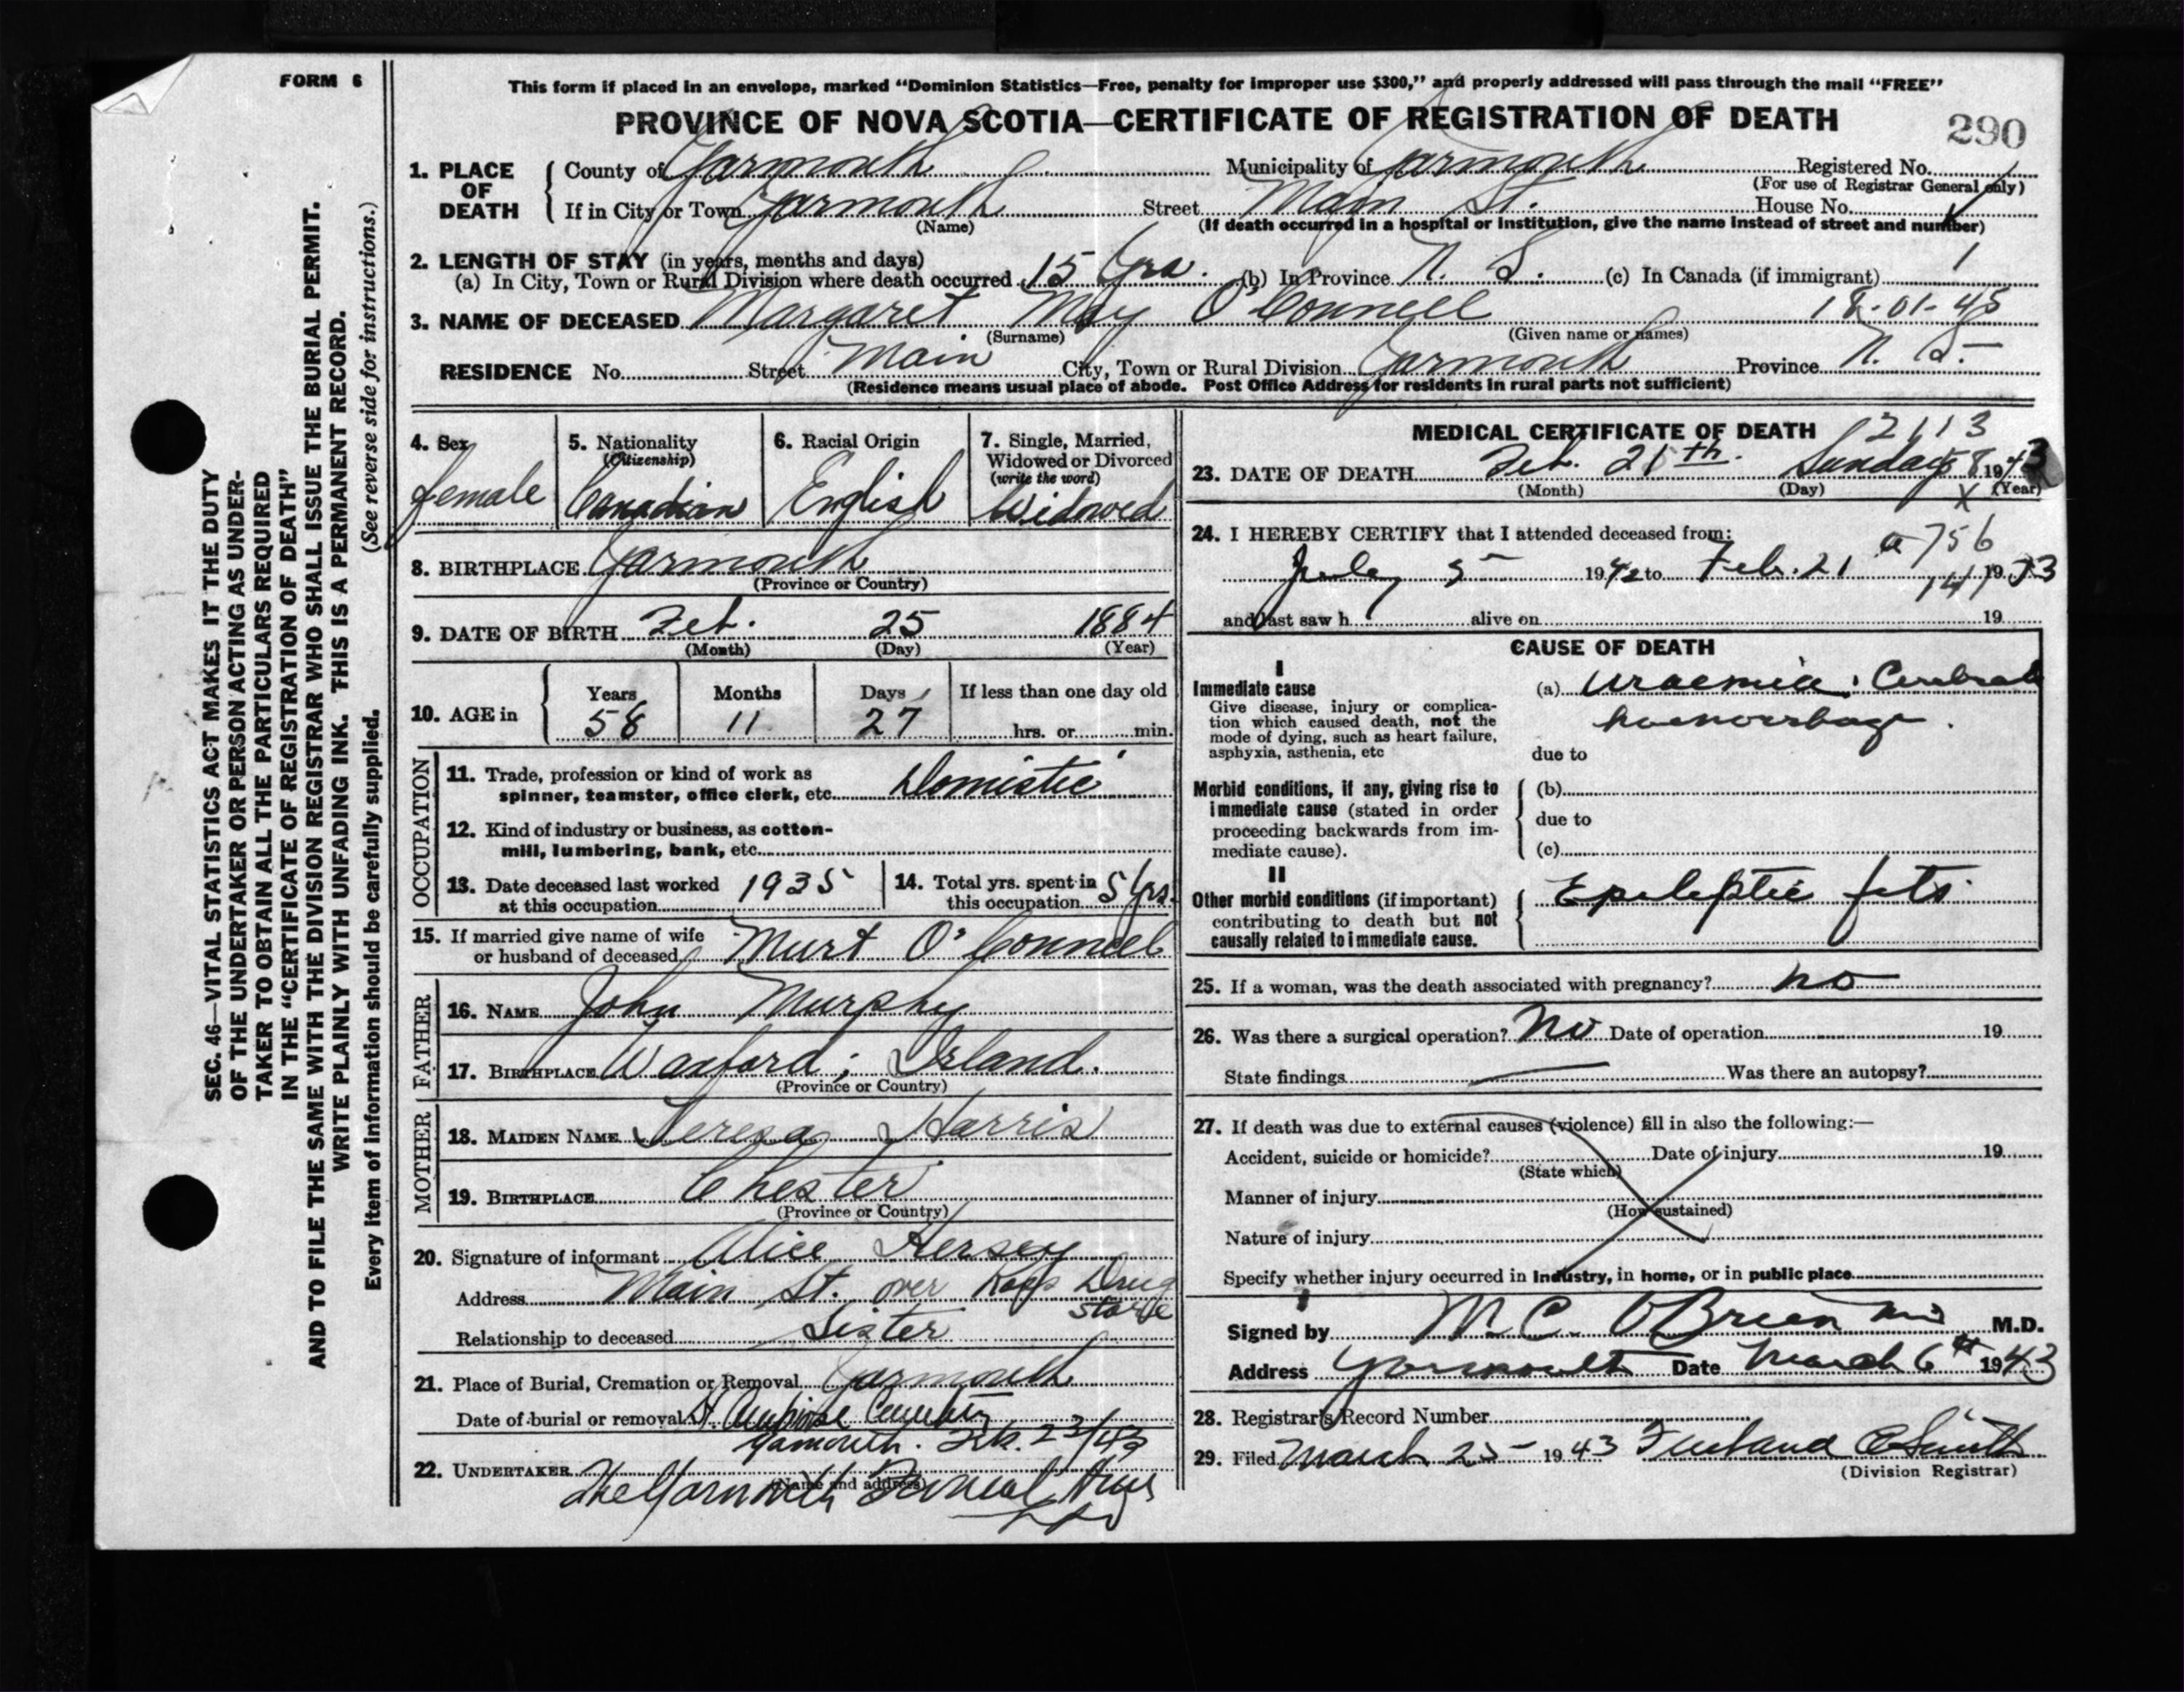 FORM 6
This form if placed in an envelope, marked "Dominion Statistics—Free, penalty for improper use $300," and properly addressed will pass through the mail "FREE"
PROVINCE OF NOVA SCOTIA—CERTIFICATE OF REGISTRATION OF DEATH
290
SEC. 46—VITAL STATISTICS ACT MAKES IT THE DUTY
OF THE UNDERTAKER OR PERSON ACTING AS UNDER-
TAKER TO OBTAIN ALL THE PARTICULARS REQUIRED
IN THE "CERTIFICATE OF REGISTRATION OF DEATH"
AND TO FILE THE SAME WITH THE DIVISION REGISTRAR WHO SHALL ISSUE THE BURIAL PERMIT.
WRITE PLAINLY WITH UNFADING INK. THIS IS A PERMANENT RECORD.
Every item of information should be carefully supplied. (See reverse side for instructions.)
1. PLACE OF DEATH
County of Yarmouth Municipality of Yarmouth Registered No.
(For use of Registrar General only)
If in City or Town Yarmouth Street Main St. House No.
(Name) (If death occurred in a hospital or institution, give the name instead of street and number)
2. LENGTH OF STAY (in years, months and days)
(a) In City, Town or Rural Division where death occurred 15 Yrs. (b) In Province N. S. (c) In Canada (if immigrant)
3. NAME OF DECEASED Margaret May O'Connell 18-01-45
(Surname) (Given name or names)
RESIDENCE No. Street Main City, Town or Rural Division Yarmouth Province N. S.
(Residence means usual place of abode. Post Office Address for residents in rural parts not sufficient)
4. Sex
female
5. Nationality
(Citizenship)
Canadian
6. Racial Origin
English
7. Single, Married,
Widowed or Divorced
(write the word)
Widowed
8. BIRTHPLACE Yarmouth
(Province or Country)
9. DATE OF BIRTH Feb. 25 1884
(Month) (Day) (Year)
10. AGE in
Years Months Days If less than one day old
58 11 27 hrs. or min.
OCCUPATION
11. Trade, profession or kind of work as
spinner, teamster, office clerk, etc. Domistic
12. Kind of industry or business, as cotton-
mill, lumbering, bank, etc.
13. Date deceased last worked
at this occupation 1935
14. Total yrs. spent in
this occupation 5 Yrs.
15. If married give name of wife
or husband of deceased Murt O'Connell
FATHER
16. NAME John Murphy
17. BIRTHPLACE Waxford, Irland.
(Province or Country)
MOTHER
18. MAIDEN NAME Teresa Harris
19. BIRTHPLACE Chester
(Province or Country)
20. Signature of informant Alice Hersey
Address Main St. over Drug
store
Relationship to deceased Sister
21. Place of Burial, Cremation or Removal Yarmouth
Date of burial or removal St. Ambrose Cemetery
Yarmouth. Feb. 23/43
22. UNDERTAKER
(Name and address)
The Yarmouth Funeral Ltd
MEDICAL CERTIFICATE OF DEATH
12113
23. DATE OF DEATH Feb. 21th. Sunday 1943
(Month) (Day) (Year)
24. I HEREBY CERTIFY that I attended deceased from:
756
July 5 1942 to Feb. 21 1943
141
and last saw h alive on 19
CAUSE OF DEATH
I
Immediate cause
Give disease, injury or complica-
tion which caused death, not the
mode of dying, such as heart failure,
asphyxia, asthenia, etc
(a) Uraemia: Cerebral
haemorrhage.
due to
Morbid conditions, if any, giving rise to
immediate cause (stated in order
proceeding backwards from im-
mediate cause).
(b)
due to
(c)
II
Other morbid conditions (if important)
contributing to death but not
causally related to immediate cause.
Epileptic fits
25. If a woman, was the death associated with pregnancy? no
26. Was there a surgical operation? No Date of operation 19
State findings Was there an autopsy?
27. If death was due to external causes (violence) fill in also the following:—
Accident, suicide or homicide? Date of injury 19
(State which)
Manner of injury
(How sustained)
Nature of injury
Specify whether injury occurred in industry, in home, or in public place
Signed by M. C. O'Brien MD M.D.
Address Yarmouth Date March 6th 1943
28. Registrar's Record Number
29. Filed March 25 1943 Smith
(Division Registrar)